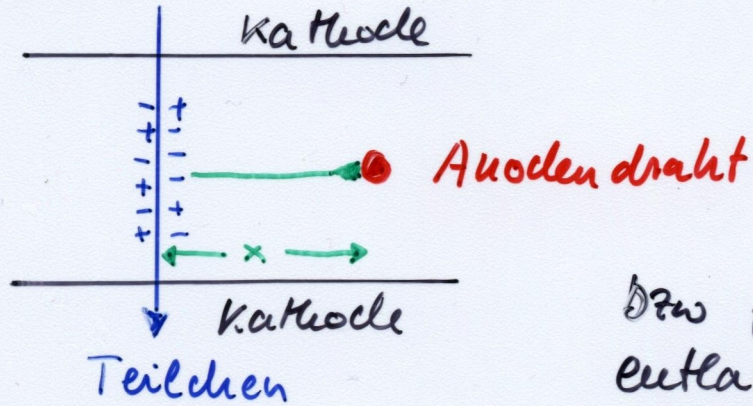 Kathode
- +
+ -
- -
+ -
- +
+ -
Anodendraht
x
Kathode
bzw
Teilchen
entla